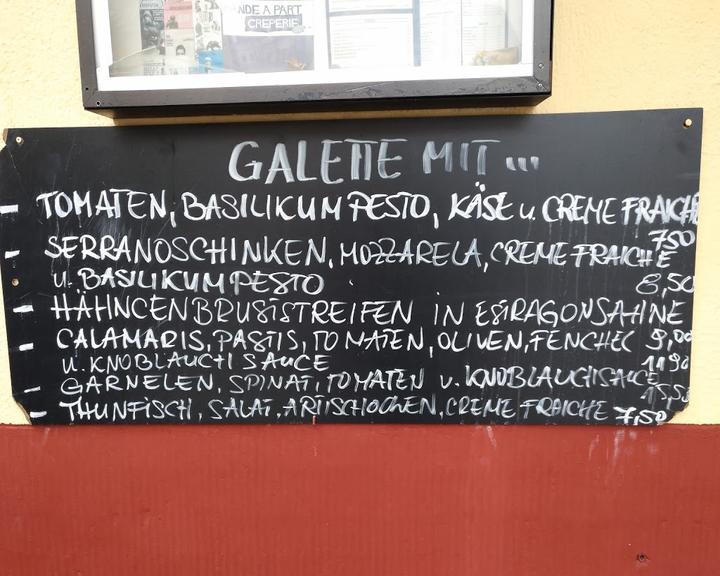 NDE A PART
CREPERIE
GALETTE MIT...
- TOMATEN, BASILIKUM PESTO, KÄSE u. CREME FRAICHE
750
- SERRANOSCHINKEN, MOZZARELA, CREME FRAICHE
u. BASILIKUM PESTO 8,50
- HÄHNCENBRUSTSTREIFEN IN ESTRAGONSAHNE
9,00
- CALAMARIS, PASTIS, TOMATEN, OLIVEN, FENCHEL
U. KNOBLAUCH SAUCE 11 90
- GARNELEN, SPINAT, TOMATEN U. KNOBLAUCHSAUCE
- THUNFISCH, SALAT, ARTISCHOCKEN, CREME FRAICHE 7,50